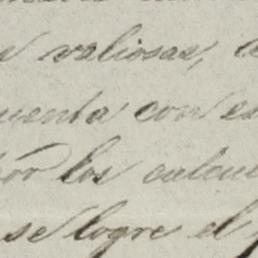 valiosas,
cuenta con es
por los calcu
se logre el